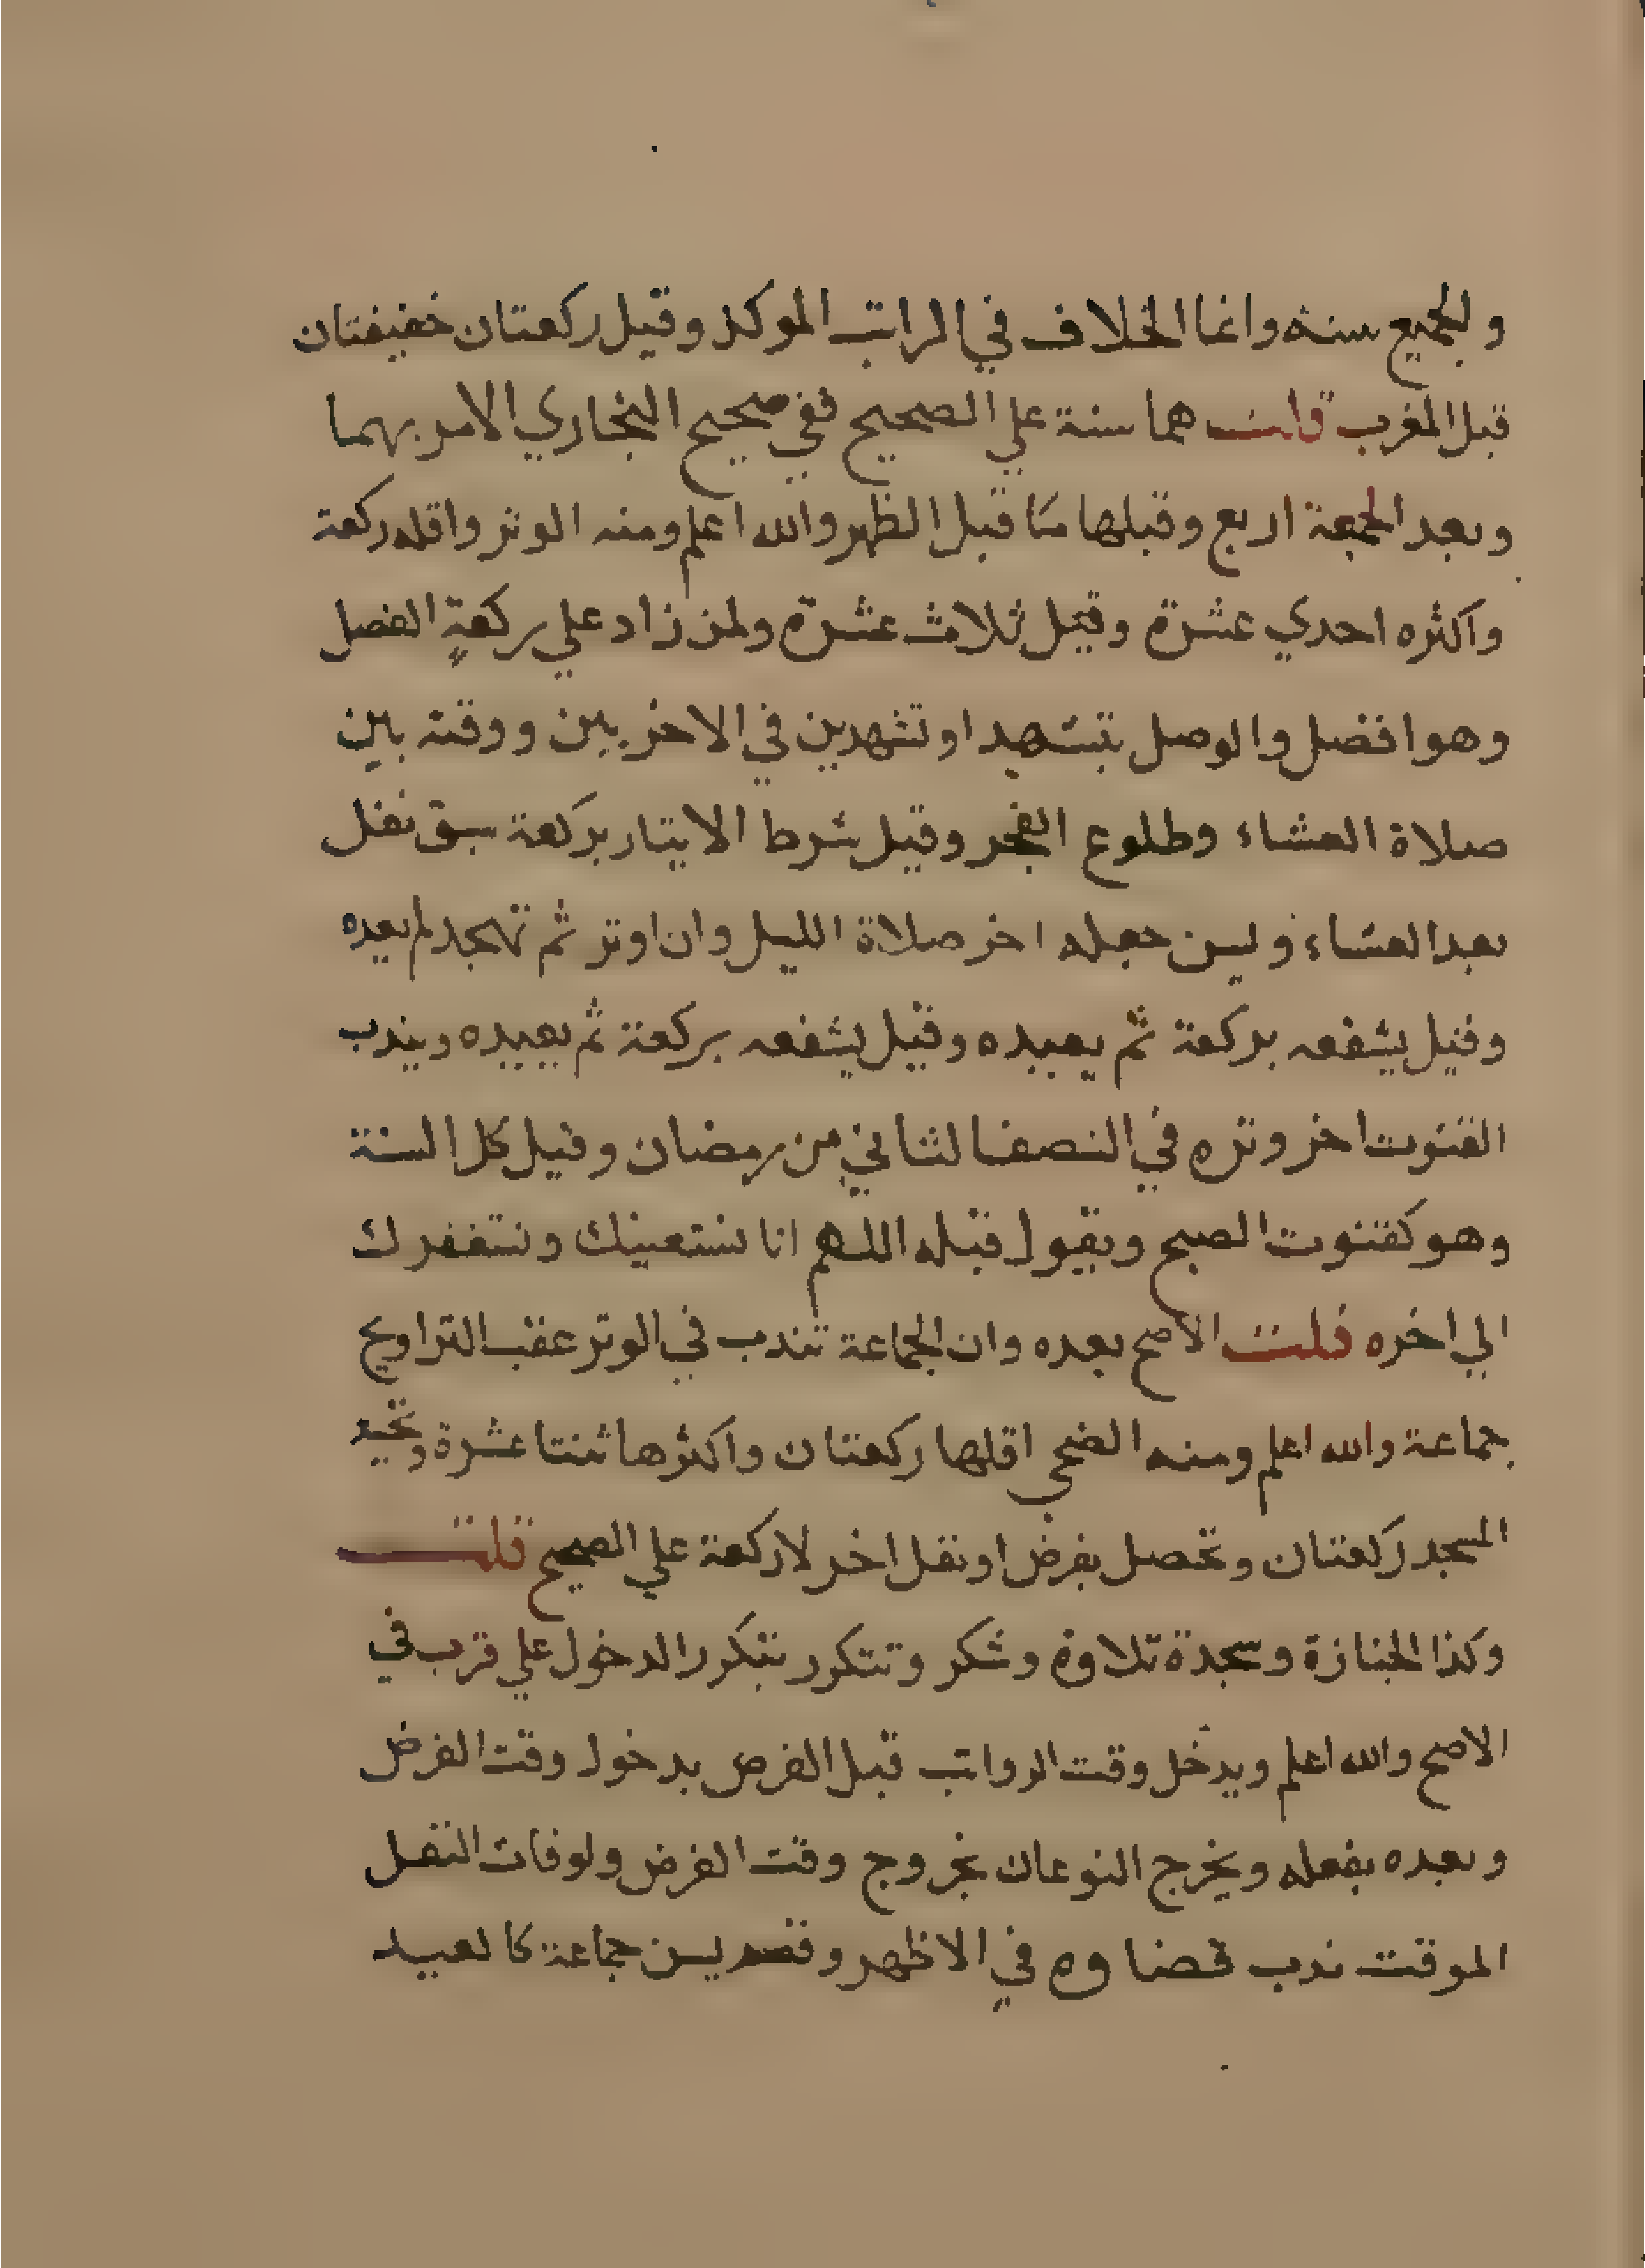 والجميع سنه وانما الخلاف في الراتب الموكد وقيل ركعتان خفيفتان
قبل المغرب قلت هما سنة علي الصحيح ففي صحيح البخاري الامر بهما
وبعد الجمعة اربع وقبلها ما قبل الظهر والله اعلم ومنه الوتر واقله ركعة
واكثره احدي عشرة وقيل ثلاث عشرة ولمن زاد علي ركعةٍ الفصل
وهو افضل والوصل بتشهد او تشهدين في الاخريين ووقته بين
صلاة العشاء وطلوع الفجر وقيل شرط الايتار بركعة سبق نفل
بعد العشاء ويسن جعله اخر صلاة الليل وان اوتر ثم تهجد لم يعده
وقيل يشفعه بركعة ثم يعيده وقيل يشفعه بركعة ثم يعيده ويندب
القنوت اخر وتره في النصف الثاني من رمضان وقيل كل السنة
وهو كقنوت الصبح ويقول قبله اللهم انا نستعينك ونستغفرك
الي اخره قلت الاصح بعده وان الجماعة تندب في الوتر عقب التراويح
جماعة والله اعلم ومنه الضحي اقلها ركعتان واكثرها ثنتا عشرة وتحية
المسجد ركعتان وتحصل بفرض او نفل اخر لا ركعة علي الصحيح قلت
وكذا الجنازة وسجدة تلاوة وشكر وتتكرر بتكرر الدخول علي قرب في
الاصح والله اعلم ويدخل وقت الرواتب قبل الفرض بدخول وقت الفرض
وبعده بفعله ويخرج النوعان بخروج وقت الفرض ولو فات النفل
الموقت ندب قضاوه في الاظهر وقسم يسن جماعة كالعيد